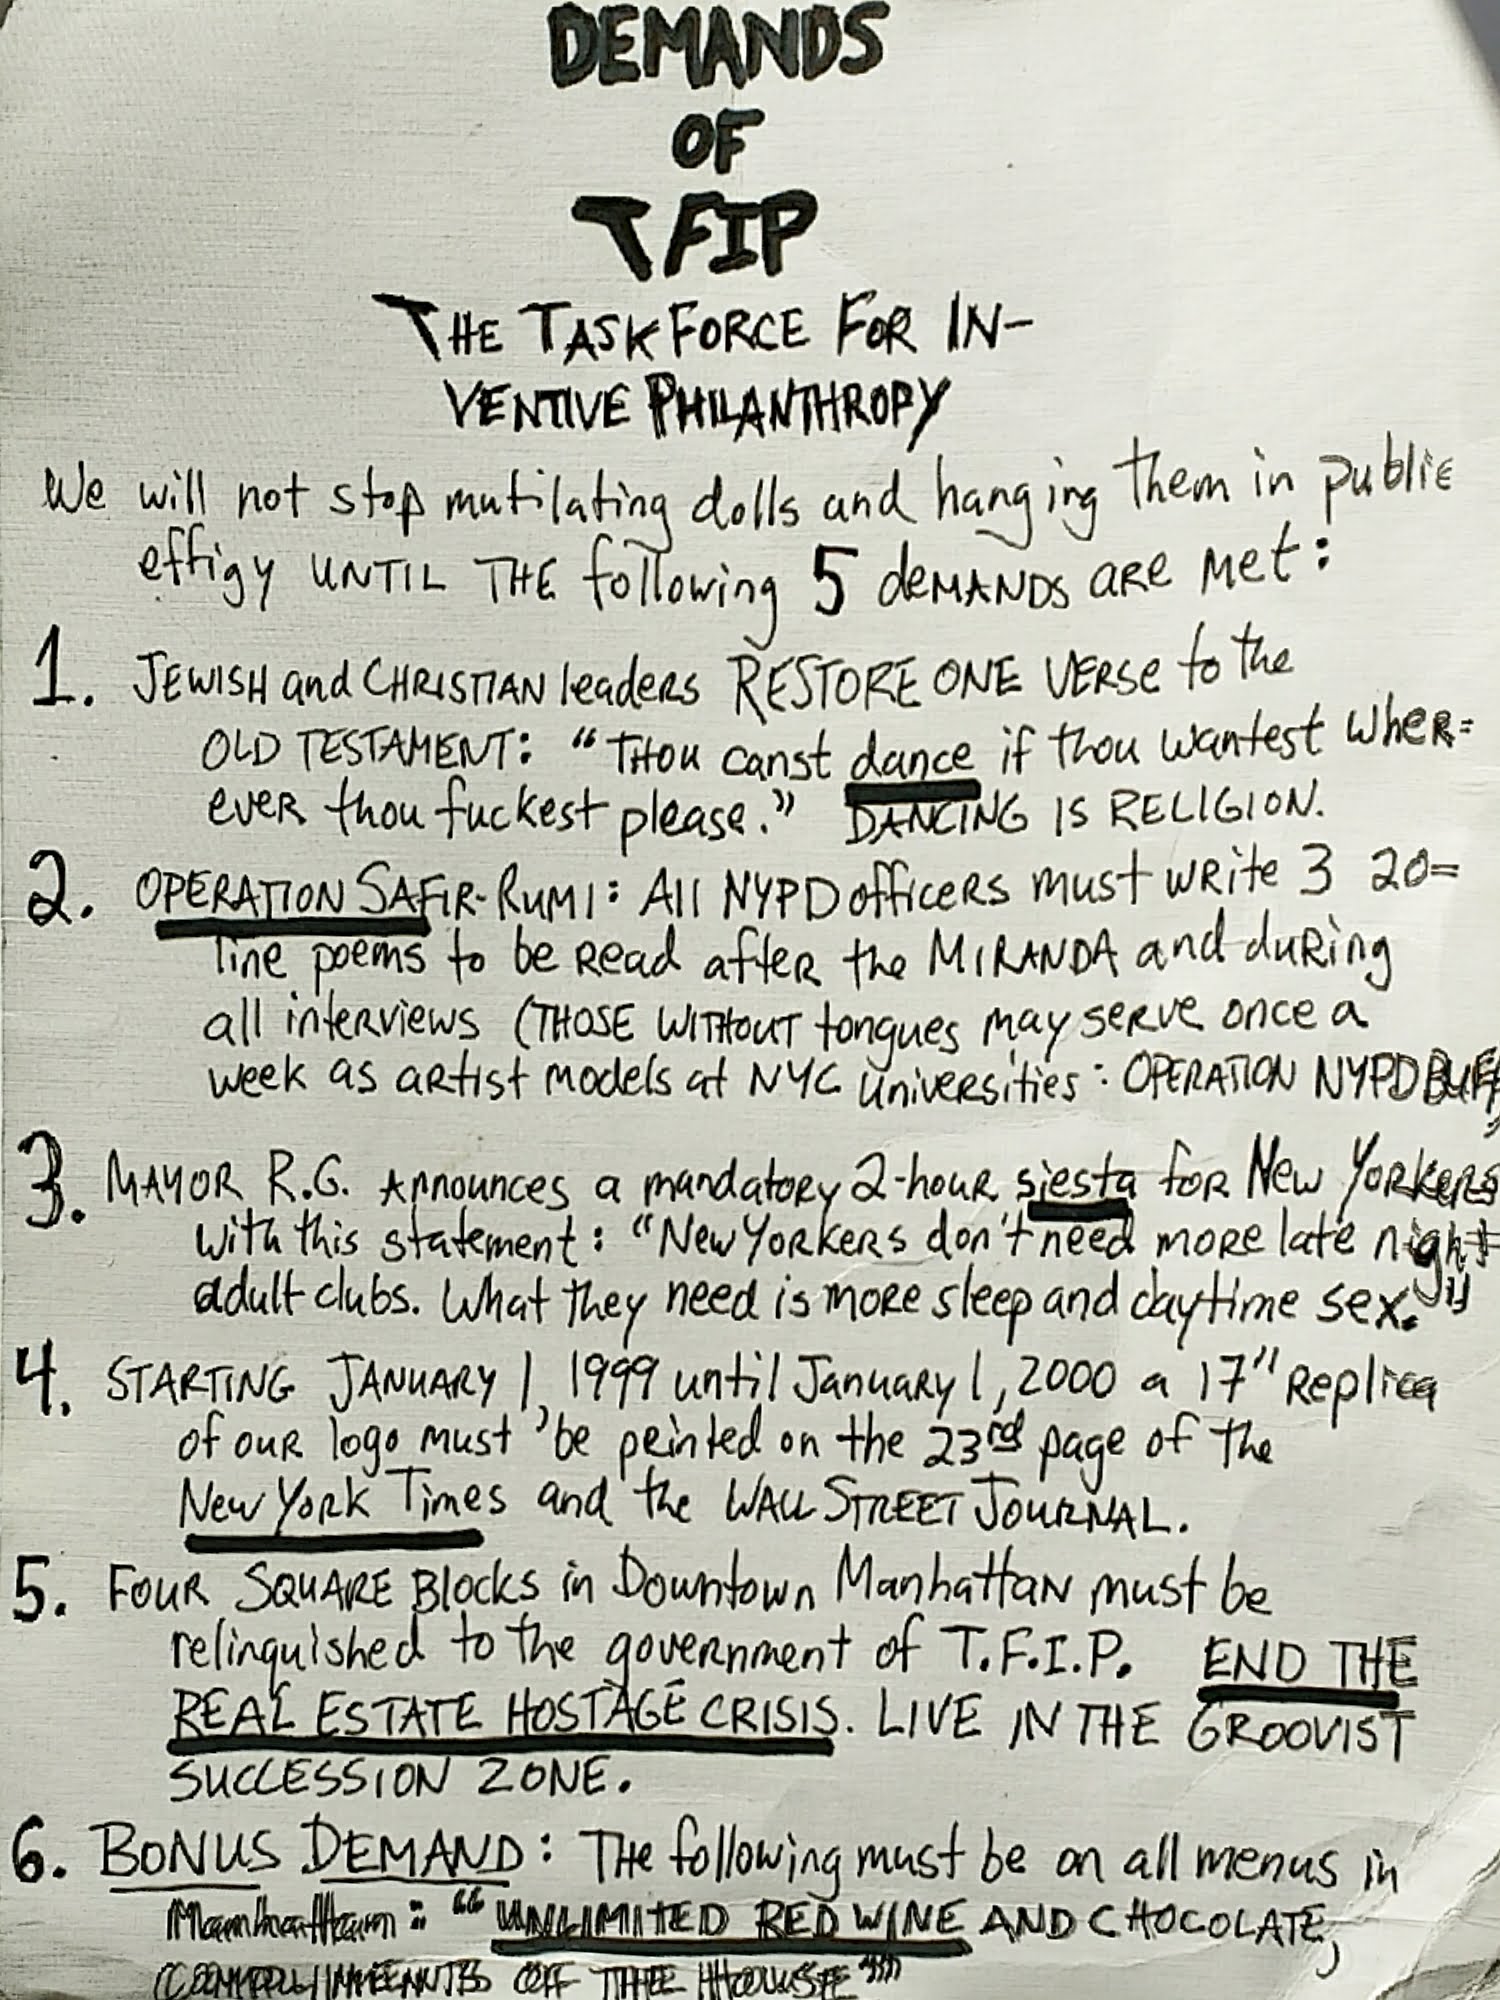 DEMANDS
OF
TFIP
THE TASK FORCE FOR IN-
VENTIVE PHILANTHROPY
We will not stop mutilating dolls and hanging them in public
effigy UNTIL THE following 5 deMANDS ARE Met:
1. JEWISH and CHRISTIAN leaders RESTORE ONE VERSe to the
OLD TESTAMENT: "THOU canst dance if thou wantest wheR=
eveR thou fuckest please." DANCING IS RELIGION.
2. OPERATION SAFIR-RUMI: All NYPD officeRs must wRite 3 20=
line poems to be Read after the MIRANDA and duRing
all interviews (THOSE WITHOUT tongues may serve once a
week as artist models at NYC Universities: OPERATION NYPD BUFF)
3. MAYOR R.G. ANNOUNCES a mandatory 2-hour siesta for New YorkeRs
with this statement: "New YorkeRs don't need more late night
adult clubs. What they need is more sleep and daytime sex."
4. STARTING JANUARY 1, 1999 until January 1, 2000 a 17" Replica
of our logo must be printed on the 23rd page of the
New York Times and the WALL STREET JOURNAL.
5. FOUR SQUARE Blocks in Downtown ManhattaN must be
relinquished to the government of T.F.I.P. END THE
REAL ESTATE HOSTAGE CRISIS. LIVE IN THE GROOVIST
SUCCESSION ZONE.
6. BONUS DEMAND: The following must be on all menus in
Manhattan: "UNLIMITED RED WINE AND CHOCOLATE,
COMPLIMENTS OF THE HOUSE"